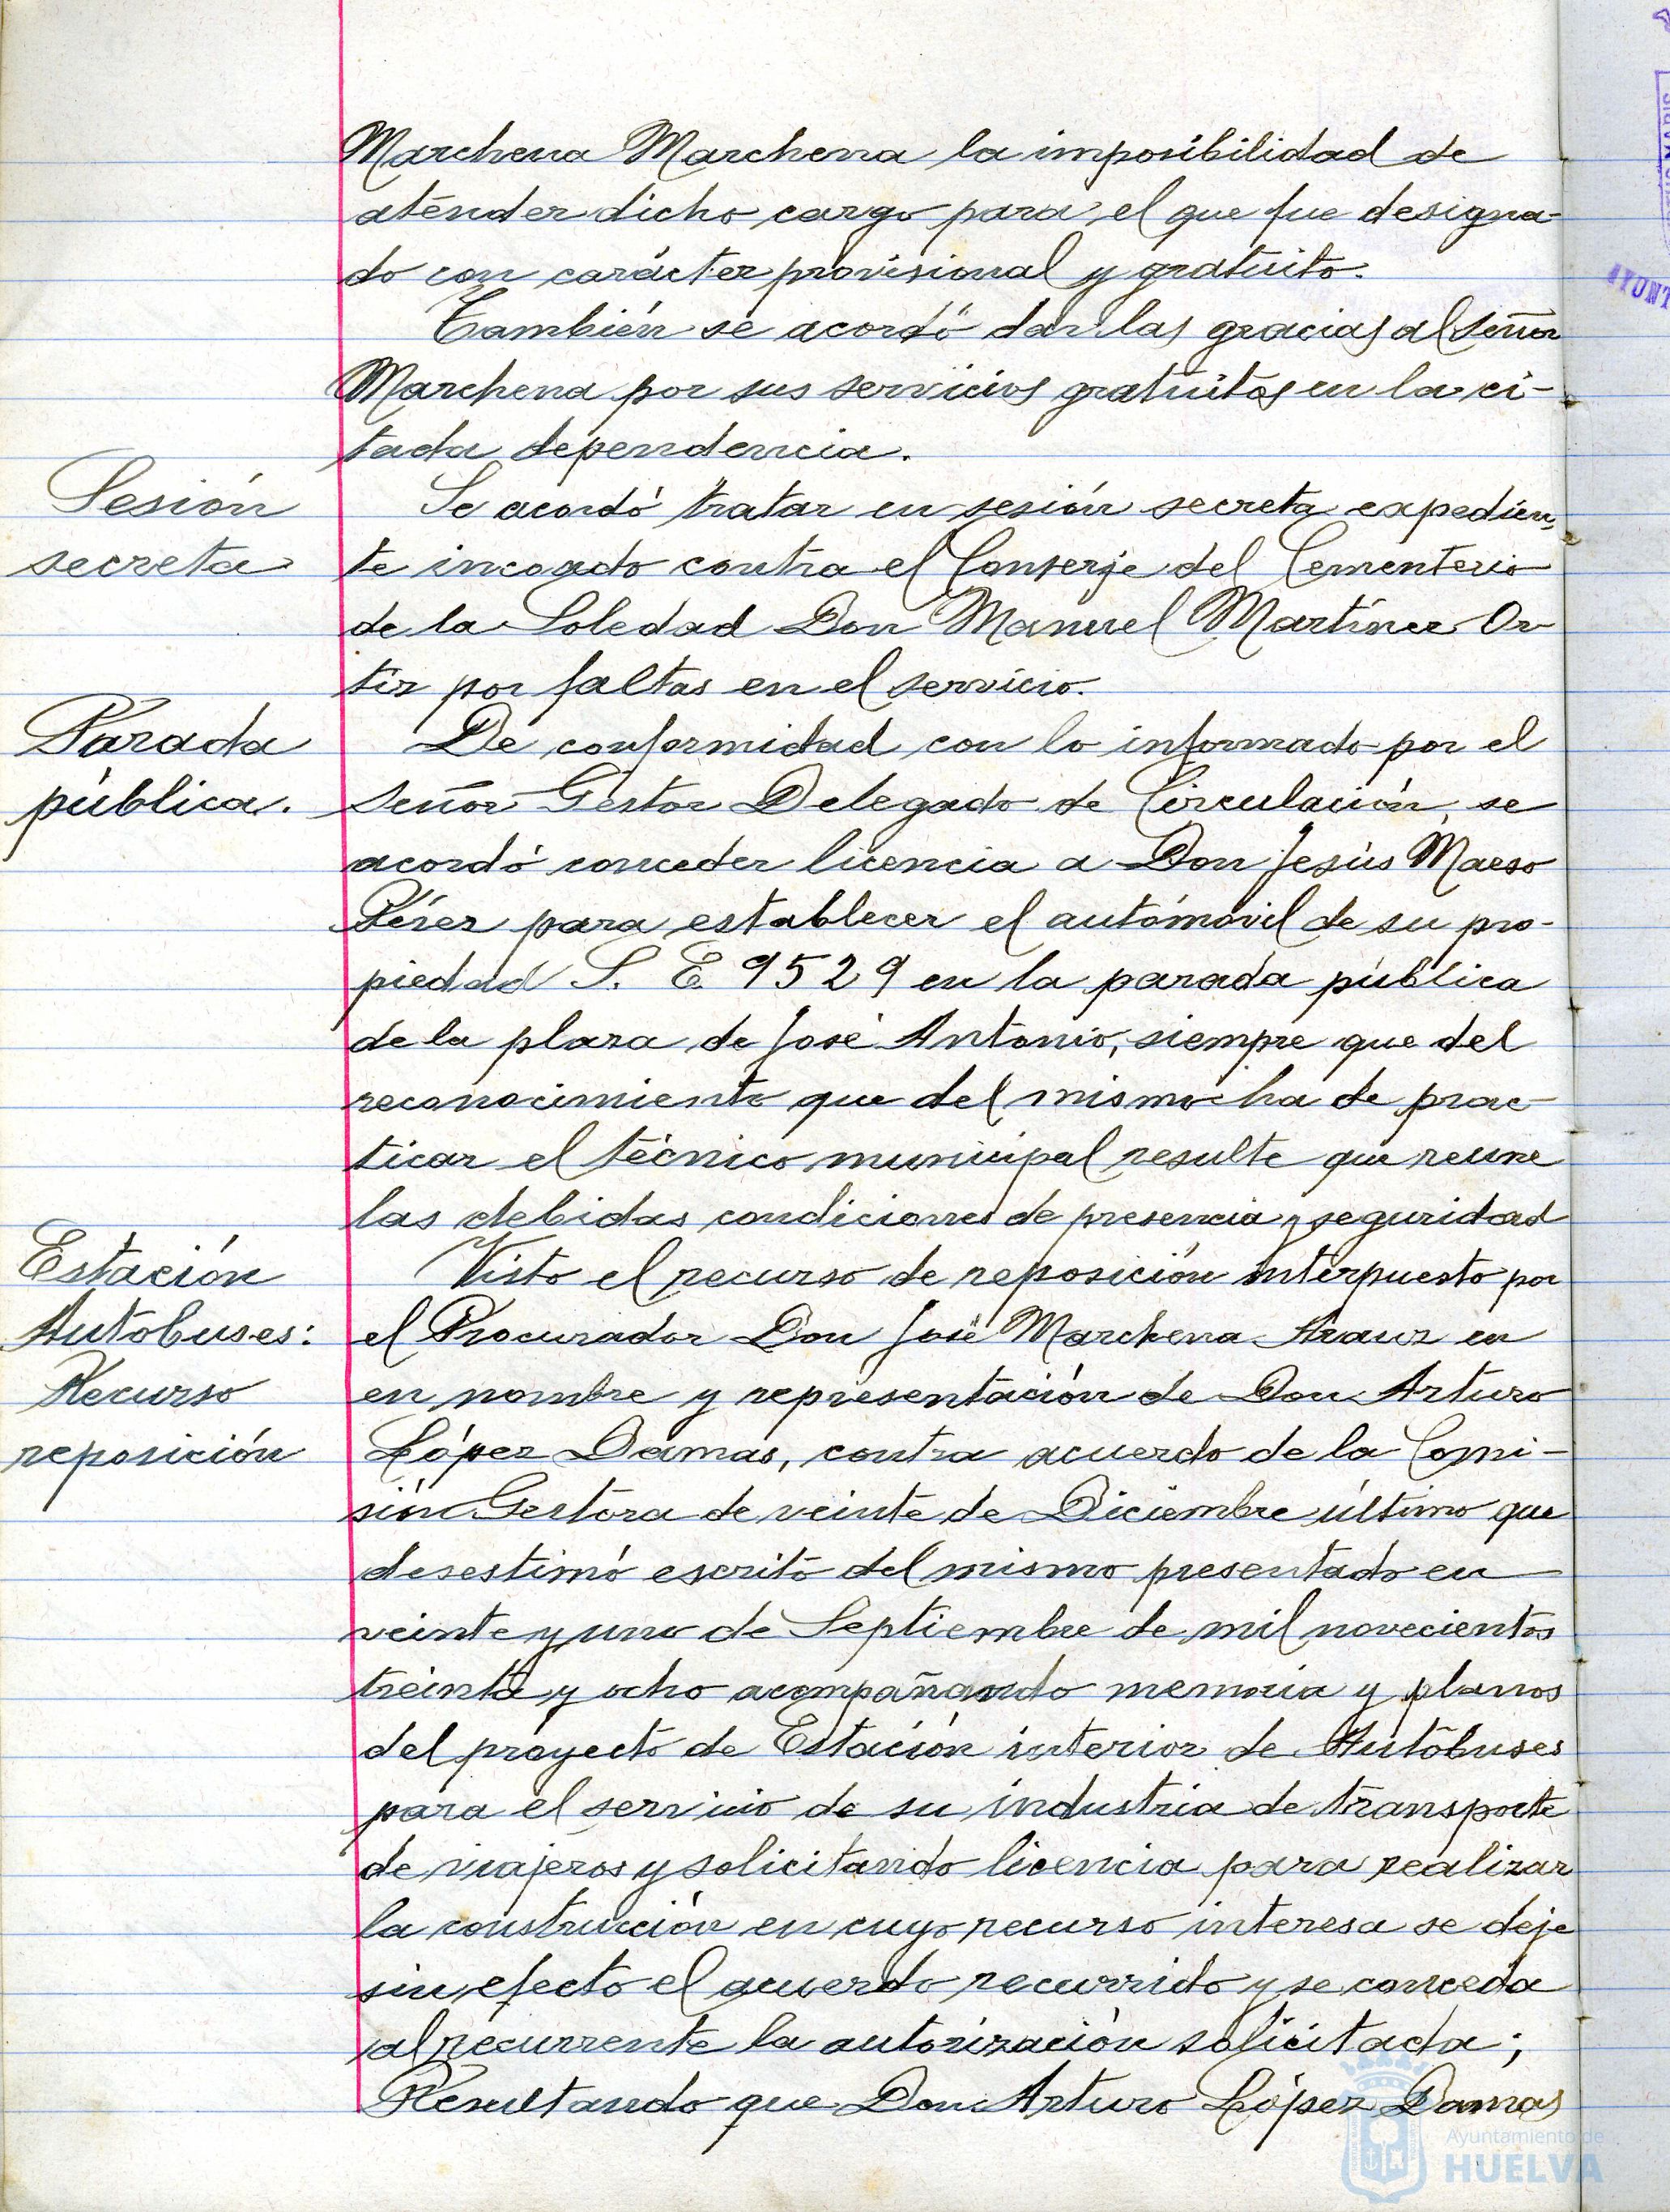 Marchena Marchena la imposibilidad de
atender dicho cargo para el que fue designa-
do con carácter provisional y gratuito.
También se acordó dar las gracias al Señor
Marchena por sus servicios gratuitos en la ci-
tada dependencia.
Sesión
secreta
Se acordó tratar en sesión secreta expedien-
te incoado contra el Conserje del Cementerio
de la Soledad Don Manuel Martínez Or
tiz por faltas en el servicio.
Parada
pública.
De conformidad con lo informado por el
Señor Gestor Delegado de Circulación, se
acordó conceder licencia a Don Jesús Maeso
Pérez para establecer el automóvil de su pro-
piedad S. E. 9529 en la parada pública
de la plaza de José Antonio, siempre que del
reconocimiento que del mismo ha de prac-
ticar el técnico municipal resulte que reune
las debidas condiciones de presencia y seguridad
Estación
Autobuses:
Recurso
reposición
Visto el recurso de reposición interpuesto por
el Procurador Don José Marchena Arauz en
en nombre y representación de Don Arturo
López Damas, contra acuerdo de la Comi-
sión Gestora de veinte de Diciembre último que
desestimó escrito del mismo presentado en
veinte y uno de Septiembre de mil novecientos
treinta y ocho acompañando memoria y planos
del proyecto de Estación interior de Autobuses
para el servicio de su industria de transporte
de viajeros y solicitando licencia para realizar
la construcción en cuyo recurso interesa se deje
sin efecto el acuerdo recurrido y se conceda
al recurrente la autorización solicitada;
Resultando que Don Arturo López Damas
Ayuntamiento de
HUELVA